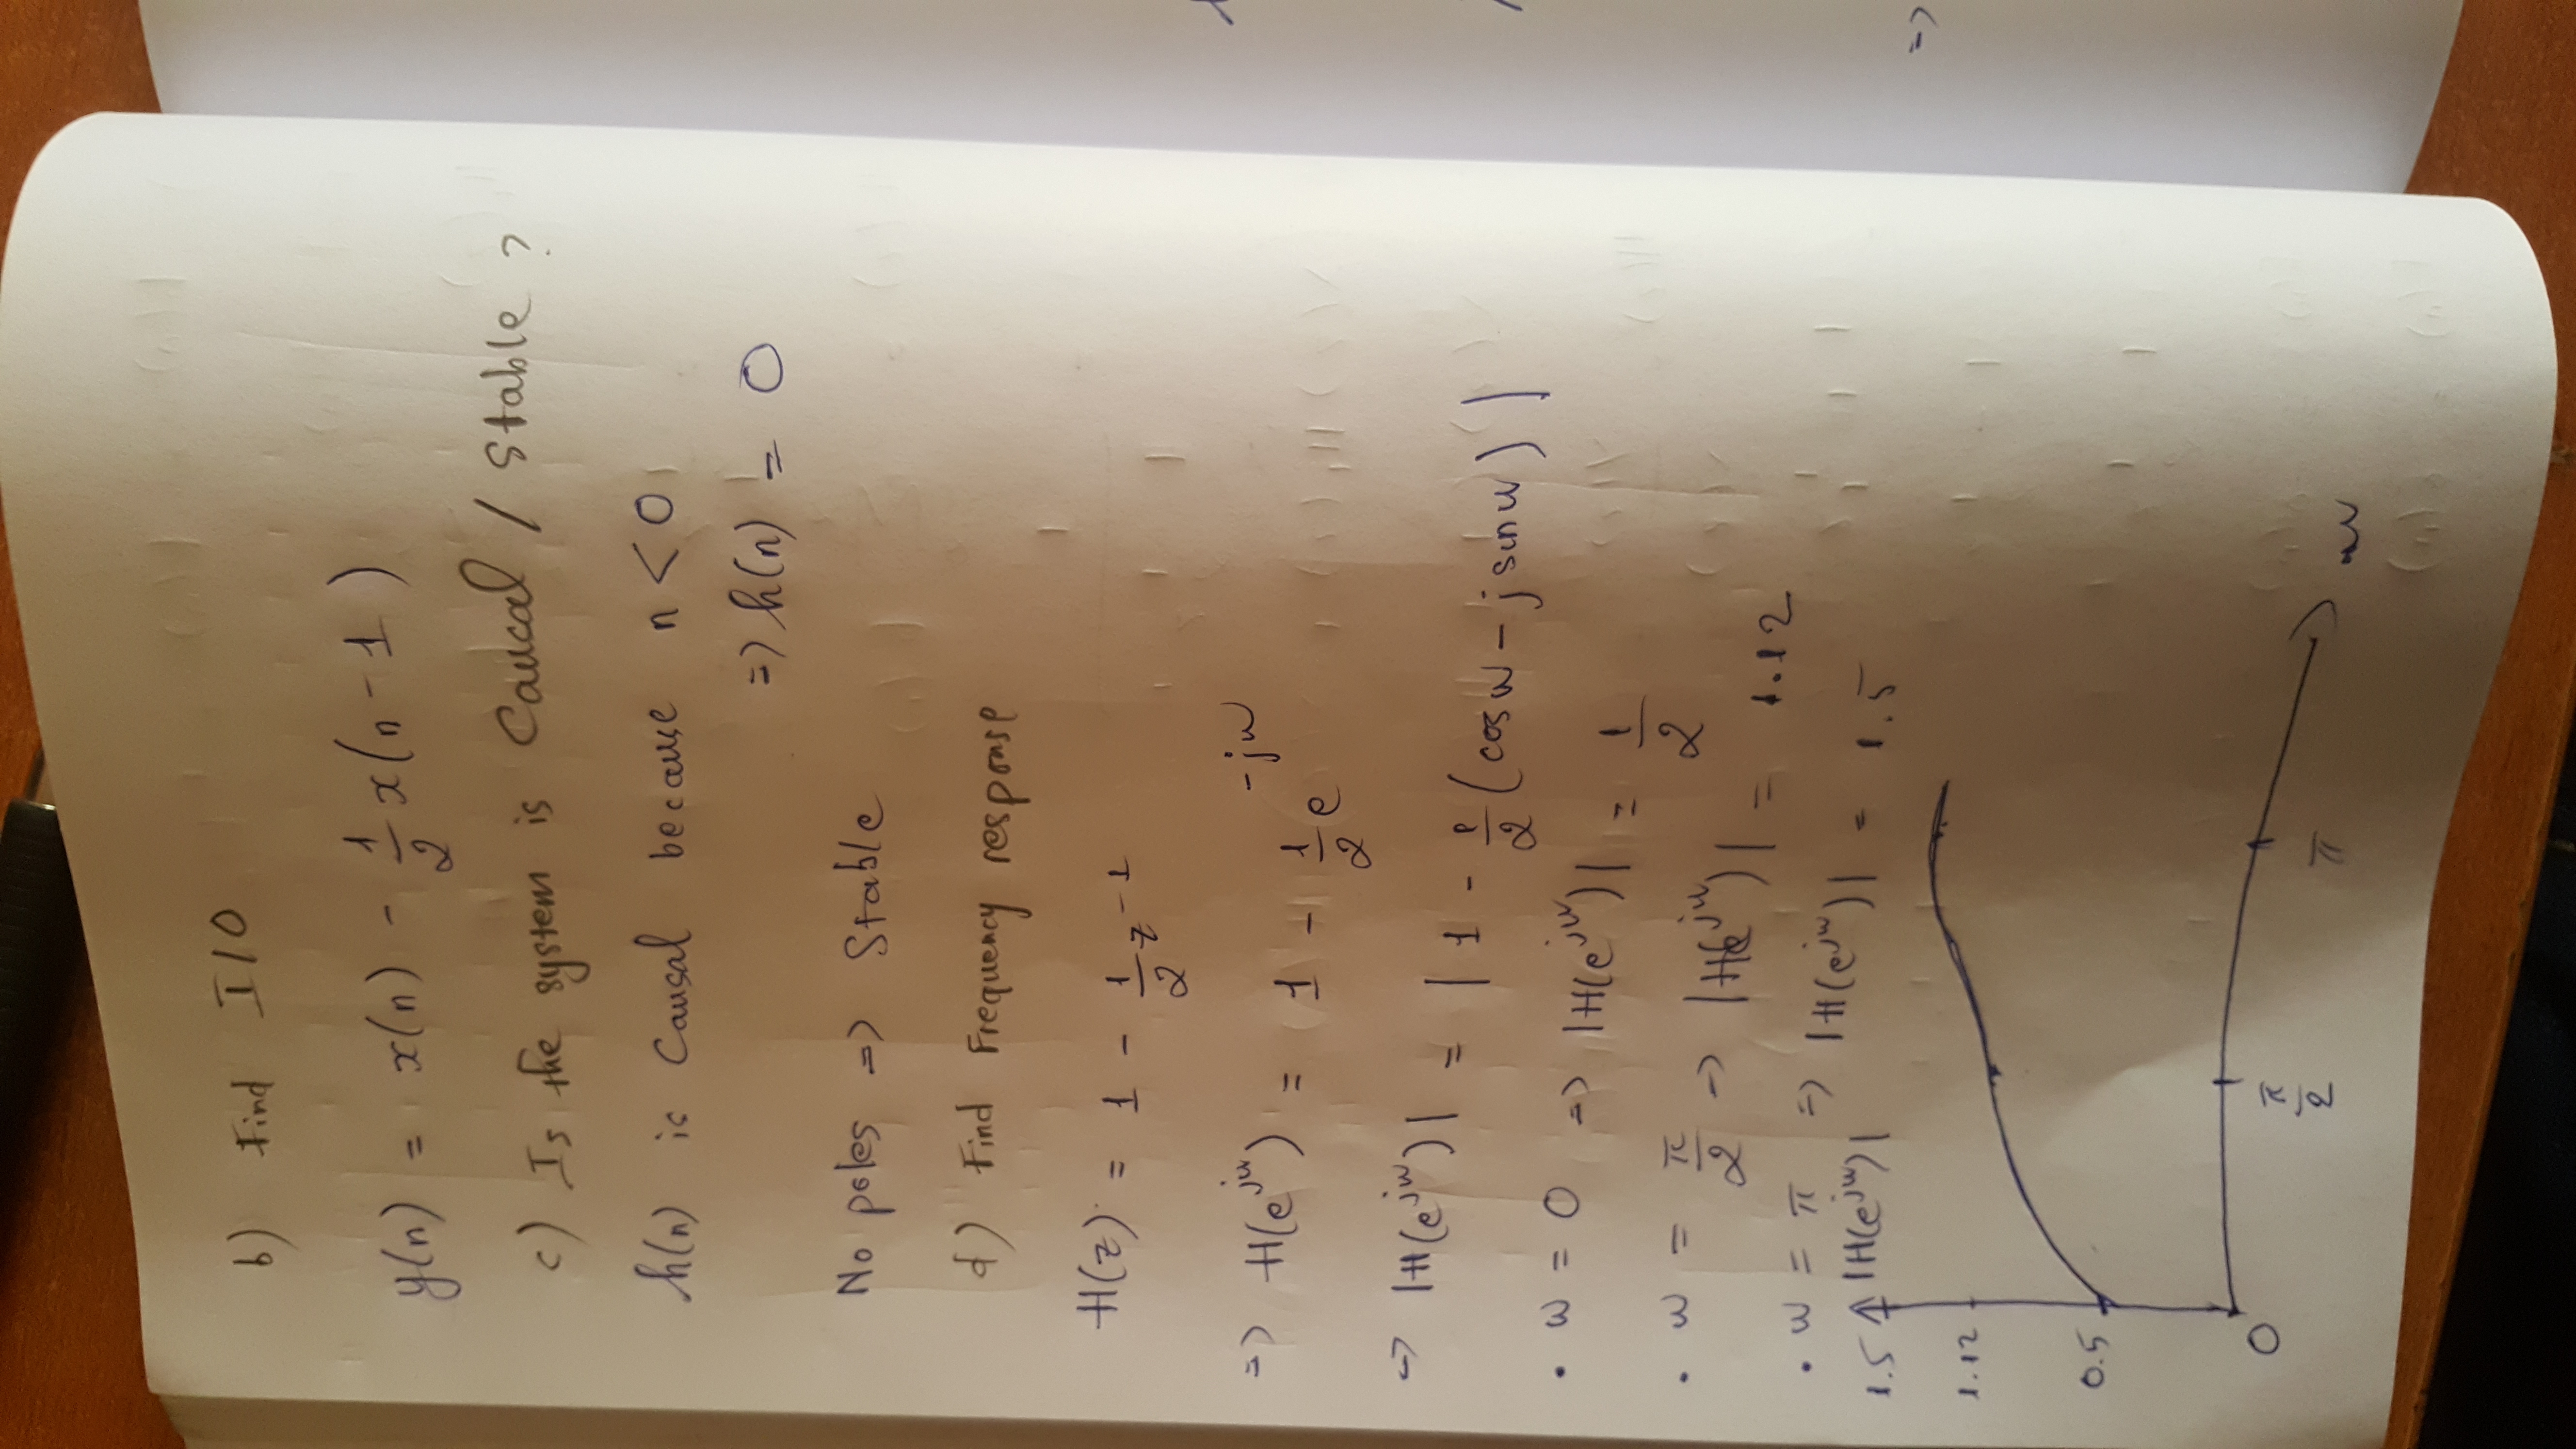 b) Find I/O
y(n) = x(n) - 1/2 x(n-1)
c) Is the system is Caucal / Stable ?
h(n) is Causal because n < 0
=> h(n) = 0
No poles => Stable
d) Find Frequency response
H(z) = 1 - 1/2 z^-1
=> H(e^jw) = 1 - 1/2 e^-jw
=> |H(e^jw)| = | 1 - 1/2 (cos w - j sin w) |
• w = 0 => |H(e^jw)| = 1/2
• w = π/2 => |H(e^jw)| = 1.12
• w = π => |H(e^jw)| = 1.5
1.5 |H(e^jw)|
1.12
0.5
0
π/2
π
w
=>